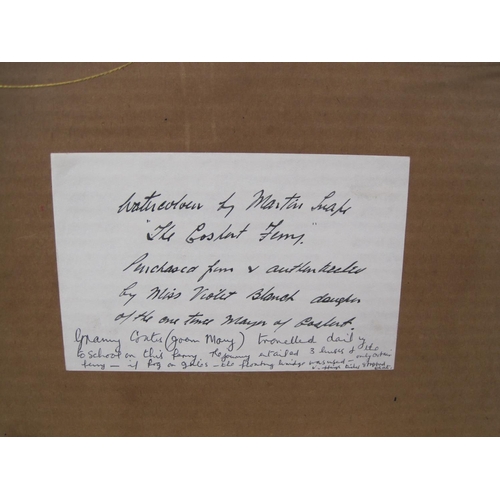 Watercolour by Martin Snape
"The Gosport Ferry"
Purchased from & authenticated
by Miss Violet Blanch daughter
of the one time Mayor of Gosport.
Granny Coates (Joan Mary) travelled daily
to school on this ferry the journey entailed 3 buses & the
ferry — if fog or gales — the floating bridge was used —